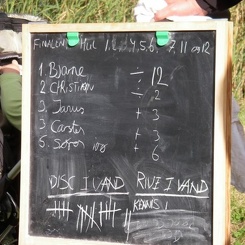 FINALEN: Hul 1.2. 4.5.6. 7. 11 og 12
1. Bjarne - 12
2 CHRISTIAN - 2
3. Janus + 3
3 Carsten + 3
5. + 6
DISC I VAND RIVE I VAND
KENNIS !